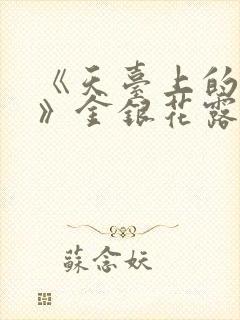 《天臺上的
》金銀花露
蘇念妖